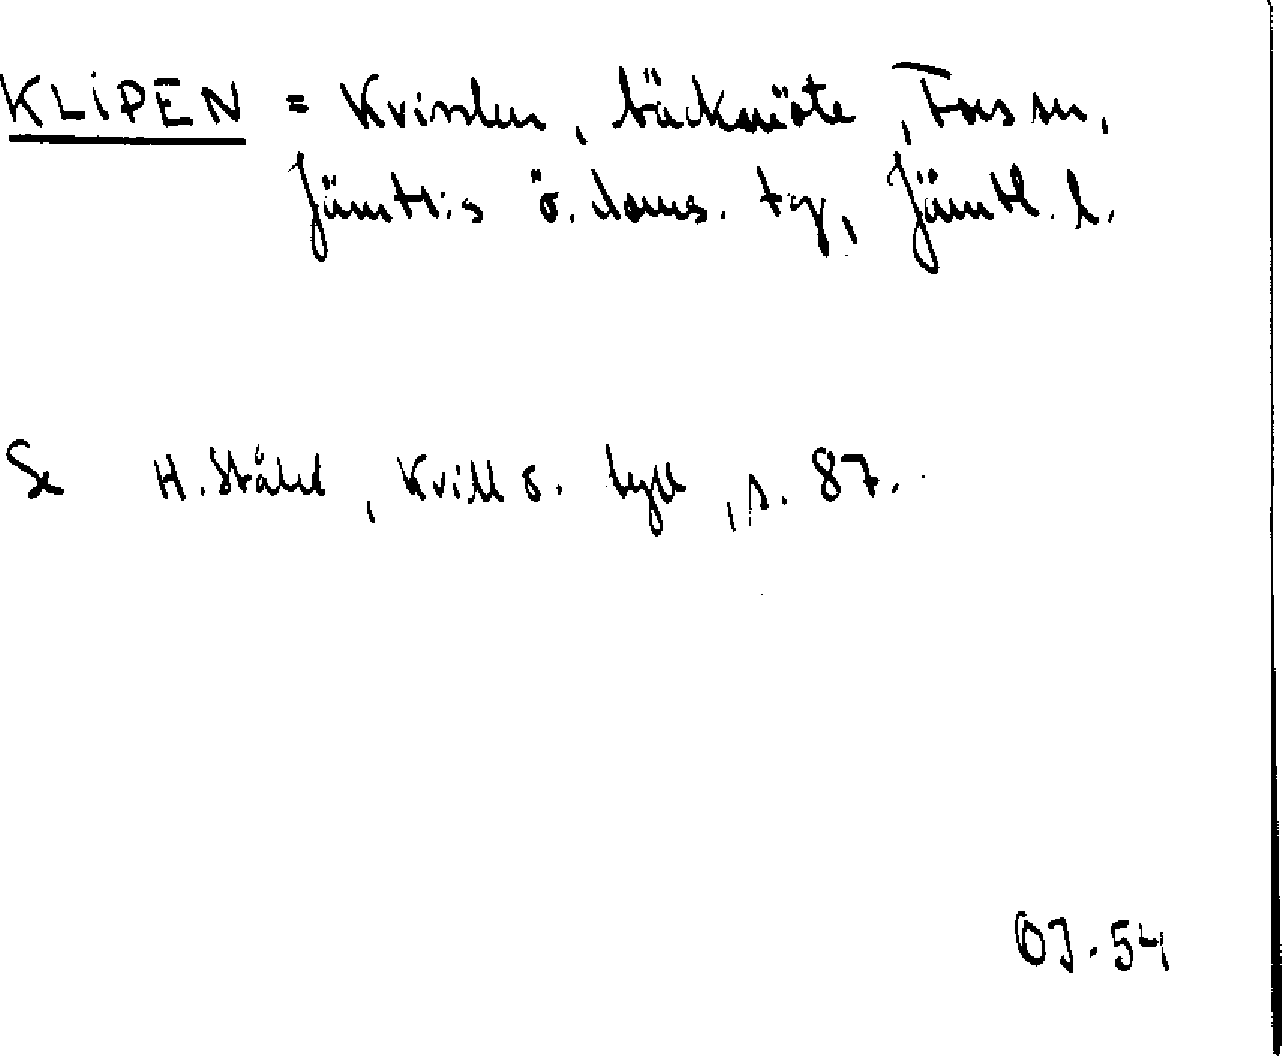 KLIPEN = Kvisslen, bäckmöte, Fors sn,
Jämtl:s ö. doms. tg, Jämtl. l.
Se H. Ståhl, Kvill o. tyll, s. 87.
OJ. 54